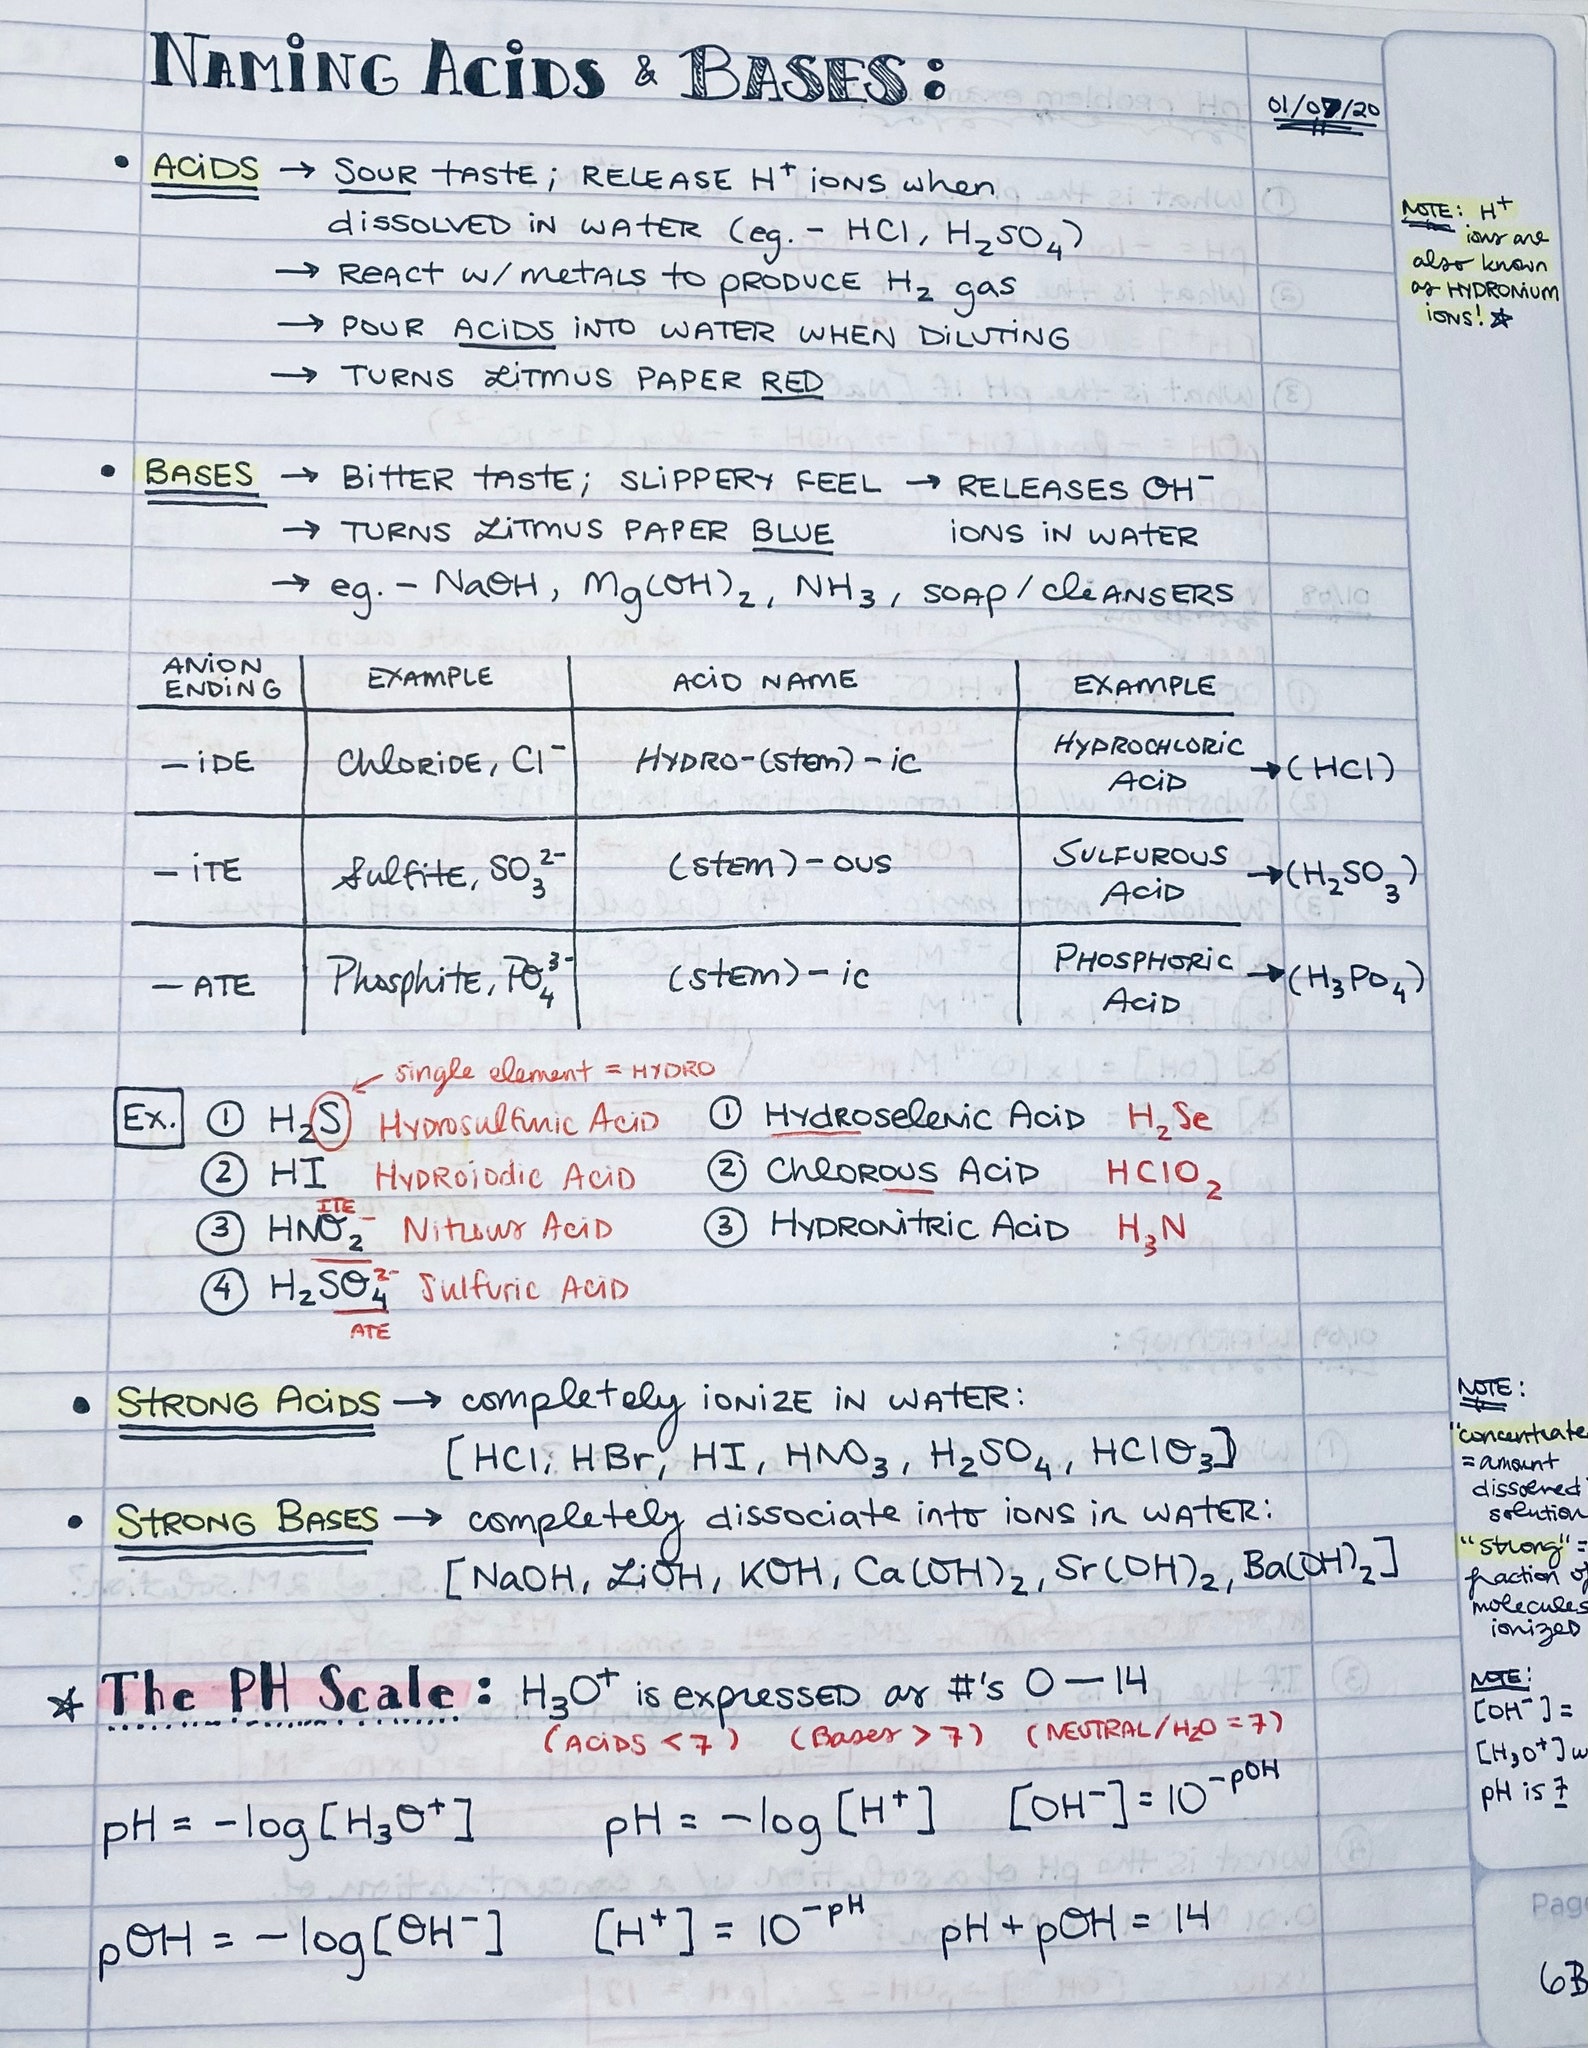 NAMING ACIDS & BASES:
01/07/20
• ACIDS → SOUR TASTE; RELEASE H⁺ IONS when
DISSOLVED IN WATER (eg. - HCl, H₂SO₄)
→ REACT w/ METALS TO PRODUCE H₂ gas
→ POUR ACIDS INTO WATER WHEN DILUTING
→ TURNS LITMUS PAPER RED
NOTE: H⁺
ions are
also known
as HYDRONIUM
IONS! ☆
• BASES → BITTER TASTE; SLIPPERY FEEL → RELEASES OH⁻
IONS IN WATER
→ TURNS LITMUS PAPER BLUE
→ eg. - NaOH, Mg(OH)₂, NH₃, SOAP/CLEANSERS
ANION ENDING | EXAMPLE | ACID NAME | EXAMPLE
-IDE | CHLORIDE, Cl⁻ | HYDRO-(STEM)-ic | HYDROCHLORIC ACID → (HCl)
-ITE | Sulfite, SO₃²⁻ | (STEM)-OUS | SULFUROUS ACID → (H₂SO₃)
-ATE | Phosphite, PO₄³⁻ | (STEM)-ic | PHOSPHORIC ACID → (H₃PO₄)
single element = HYDRO
Ex. ① H₂S Hydrosulfuric Acid
② HI Hydroiodic Acid
ITE
③ HNO₂⁻ Nitrous Acid
④ H₂SO₄²⁻ Sulfuric Acid
ATE
① Hydroselenic Acid H₂Se
② Chlorous Acid HClO₂
③ HYDRONITRIC ACID H₃N
• STRONG ACIDS → completely IONIZE IN WATER:
[HCl, HBr, HI, HNO₃, H₂SO₄, HClO₃]
• STRONG BASES → completely dissociate into IONS in WATER:
[NaOH, LiOH, KOH, Ca(OH)₂, Sr(OH)₂, Ba(OH)₂]
NOTE:
"concentrate
= amount
dissolved
solution
"strong" =
fraction of
molecules
ionized
☆ The PH Scale: H₃O⁺ is expressed as #'s 0 — 14
(ACIDS < 7) (Bases > 7) (NEUTRAL/H₂O = 7)
pH = -log[H₃O⁺] pH = -log[H⁺] [OH⁻] = 10^-pOH
pOH = -log[OH⁻] [H⁺] = 10^-pH pH + pOH = 14
NOTE:
[OH⁻] =
[H₃O⁺] w
pH is 7
Page
6B